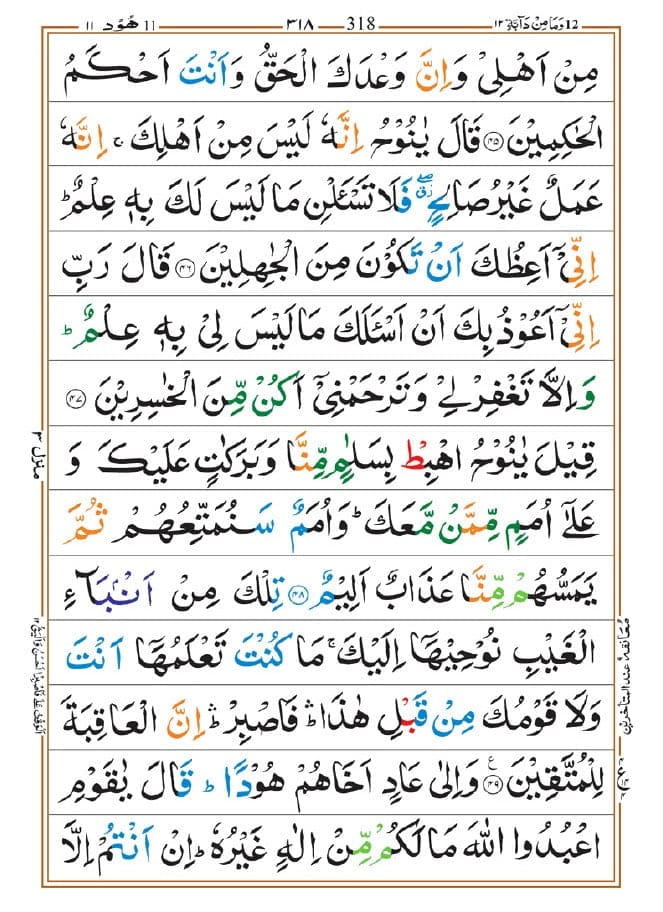 12 وَمَا مِنْ دَآبَّةٍ ١٢ 318 ٣١٨ 11 هُوْد ١١
مِنْ اَهْلِىْ وَاِنَّ وَعْدَكَ الْحَقُّ وَاَنْتَ اَحْكَمُ
الْحٰكِمِيْنَ ﴿۴۵﴾ قَالَ يٰنُوْحُ اِنَّهٗ لَيْسَ مِنْ اَهْلِكَ ۚ اِنَّهٗ
عَمَلٌ غَيْرُ صَالِحٍ ۖق فَلَا تَسْـَٔلْنِ مَا لَيْسَ لَكَ بِهٖ عِلْمٌ ؕ
اِنِّىْۤ اَعِظُكَ اَنْ تَكُوْنَ مِنَ الْجٰهِلِيْنَ ﴿۴۶﴾ قَالَ رَبِّ
اِنِّىْۤ اَعُوْذُ بِكَ اَنْ اَسْـَٔلَكَ مَا لَيْسَ لِىْ بِهٖ عِلْمٌ ؕ
وَاِلَّا تَغْفِرْ لِىْ وَتَرْحَمْنِىْۤ اَكُنْ مِّنَ الْخٰسِرِيْنَ ﴿۴۷﴾
قِيْلَ يٰنُوْحُ اهْبِطْ بِسَلٰمٍ مِّنَّا وَبَرَكٰتٍ عَلَيْكَ وَ
عَلٰٓى اُمَمٍ مِّمَّنْ مَّعَكَ ؕ وَاُمَمٌ سَنُمَتِّعُهُمْ ثُمَّ
يَمَسُّهُمْ مِّنَّا عَذَابٌ اَلِيْمٌ ﴿۴۸﴾ تِلْكَ مِنْ اَنْۢبَآءِ
الْغَيْبِ نُوْحِيْهَاۤ اِلَيْكَ ۚ مَا كُنْتَ تَعْلَمُهَاۤ اَنْتَ
وَلَا قَوْمُكَ مِنْ قَبْلِ هٰذَا ؕۛ فَاصْبِرْ ؕۛ اِنَّ الْعَاقِبَةَ
لِلْمُتَّقِيْنَ ﴿۴۹﴾ ع وَاِلٰى عَادٍ اَخَاهُمْ هُوْدًا ؕ قَالَ يٰقَوْمِ
اعْبُدُوا اللّٰهَ مَا لَكُمْ مِّنْ اِلٰهٍ غَيْرُهٗ ؕ اِنْ اَنْتُمْ اِلَّا
منزل ٣
معانقة عند المتأخرين